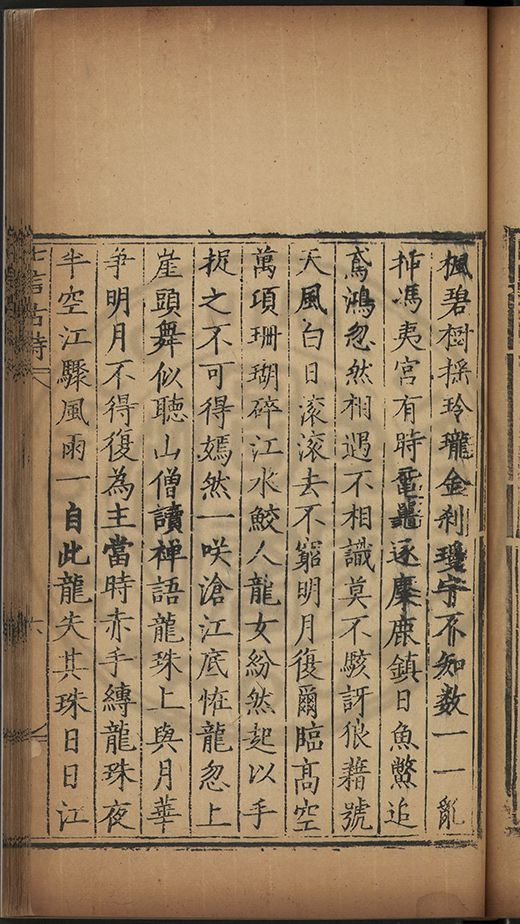 楓碧樹採玲瓏金刹瓊宇不知数一一亂
挿馮夷宮有時黿鼉逐麋鹿鎮日魚鱉追
鳶鴻忽然相遇不相識莫不駭訝狼藉號
天風白日滚滚去不窮明月復爾臨高空
萬項珊瑚碎江水鮫人龍女紛然起以手
捉之不可得嫣然一咲滄江底恠龍忽上
崖頭舞似聴山僧讀禅語龍珠上與月華
爭明月不得復為主當時赤手縳龍珠夜
半空江驟風雨一自此龍失其珠日日江
七言古詩